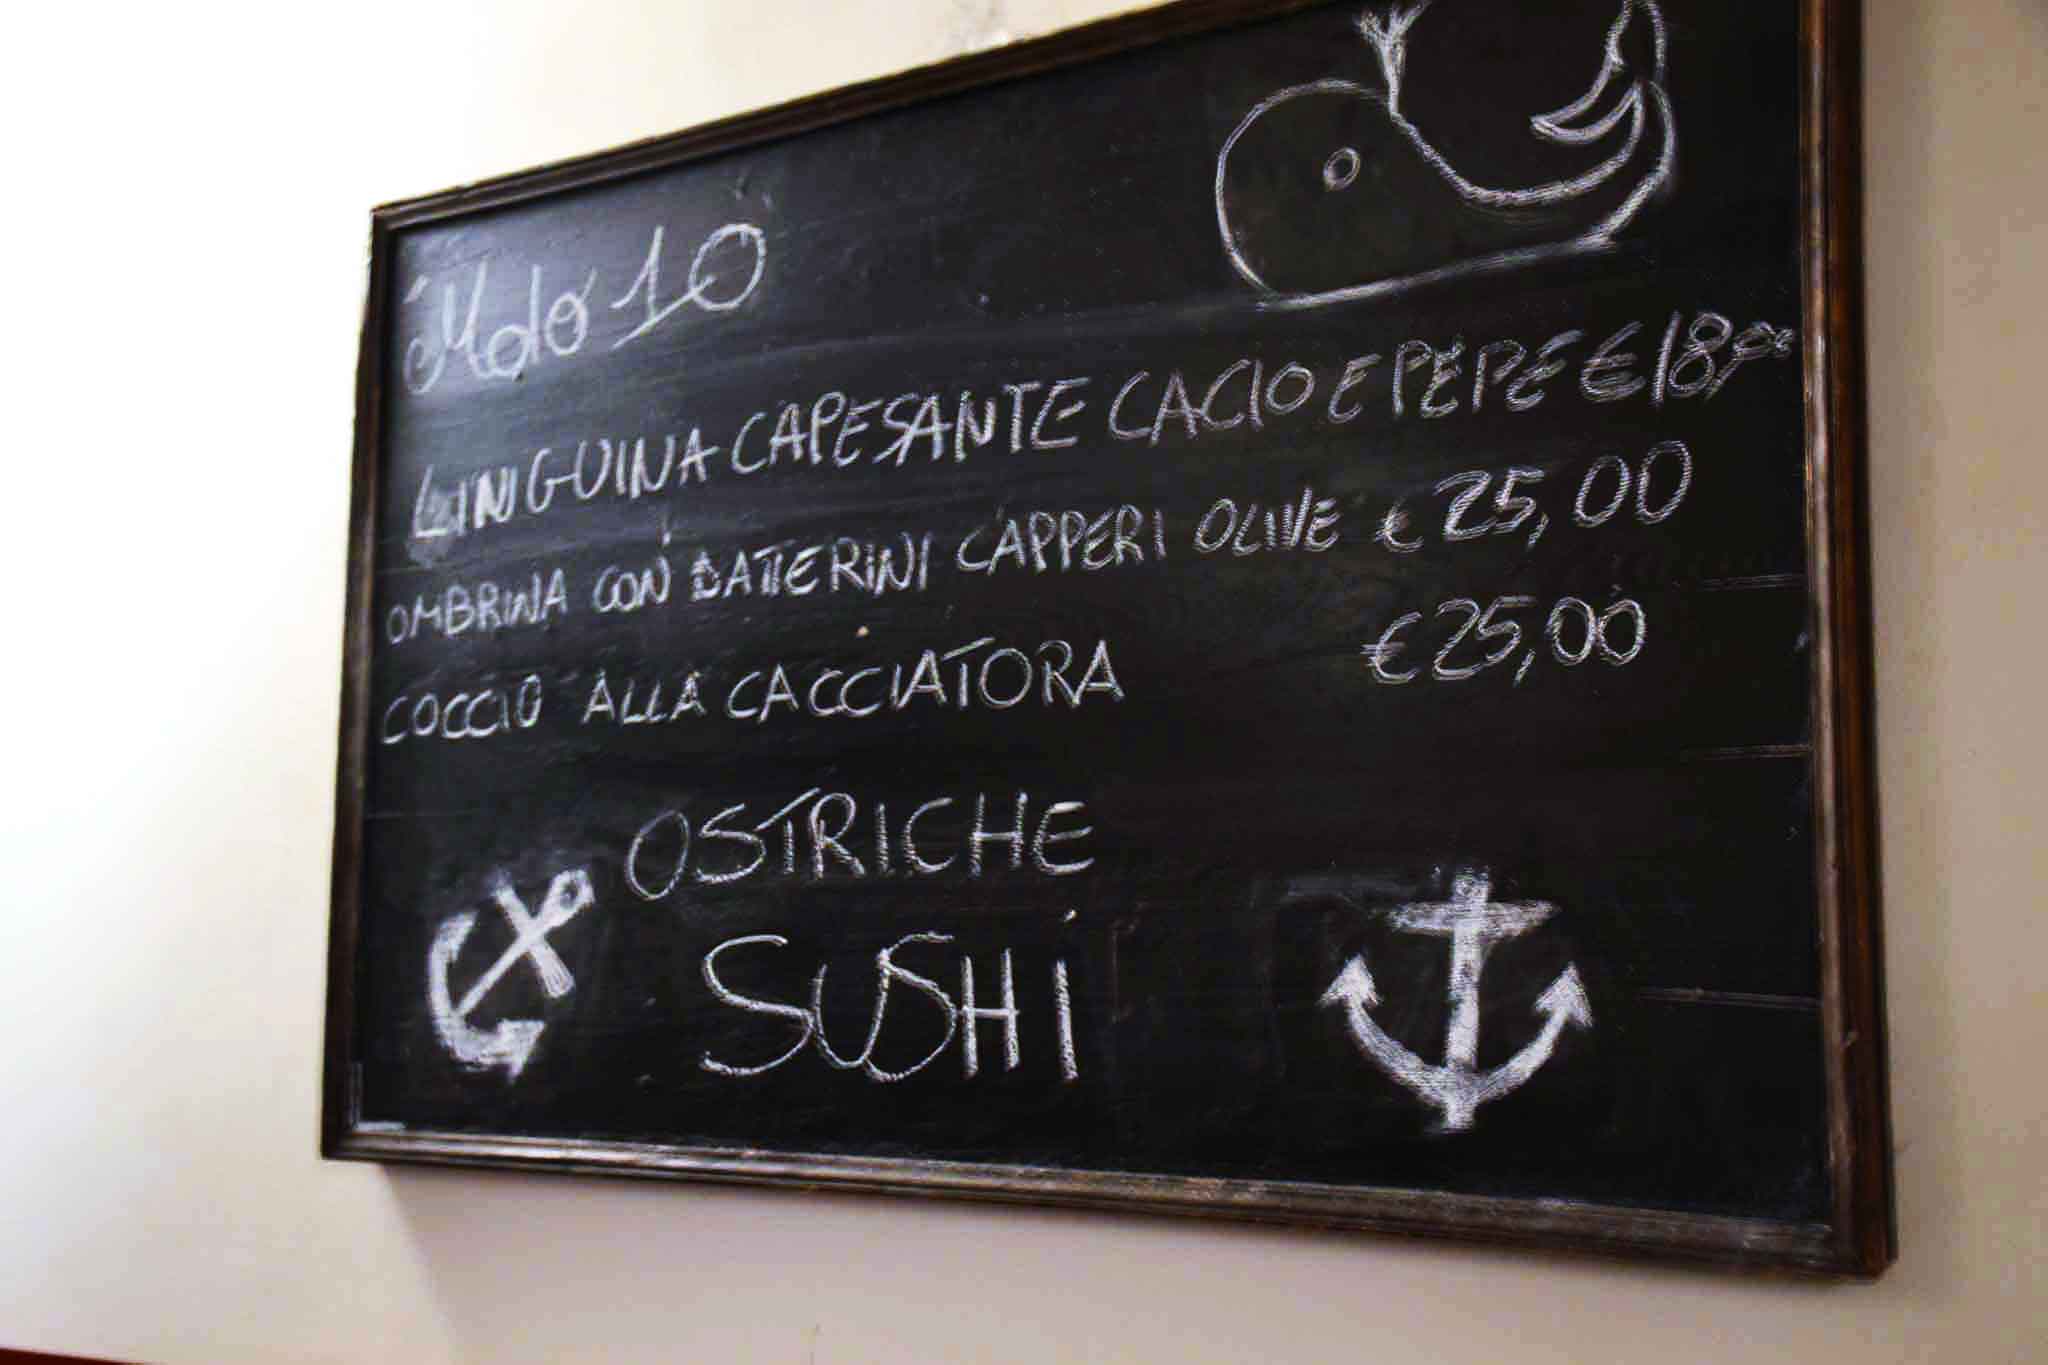 Molo 10
LINGUINA CAPESANTE CACIO E PEPE € 18,00
OMBRINA CON DATTERINI CAPPERI OLIVE € 25,00
COCCIO ALLA CACCIATORA € 25,00
OSTRICHE
SUSHi